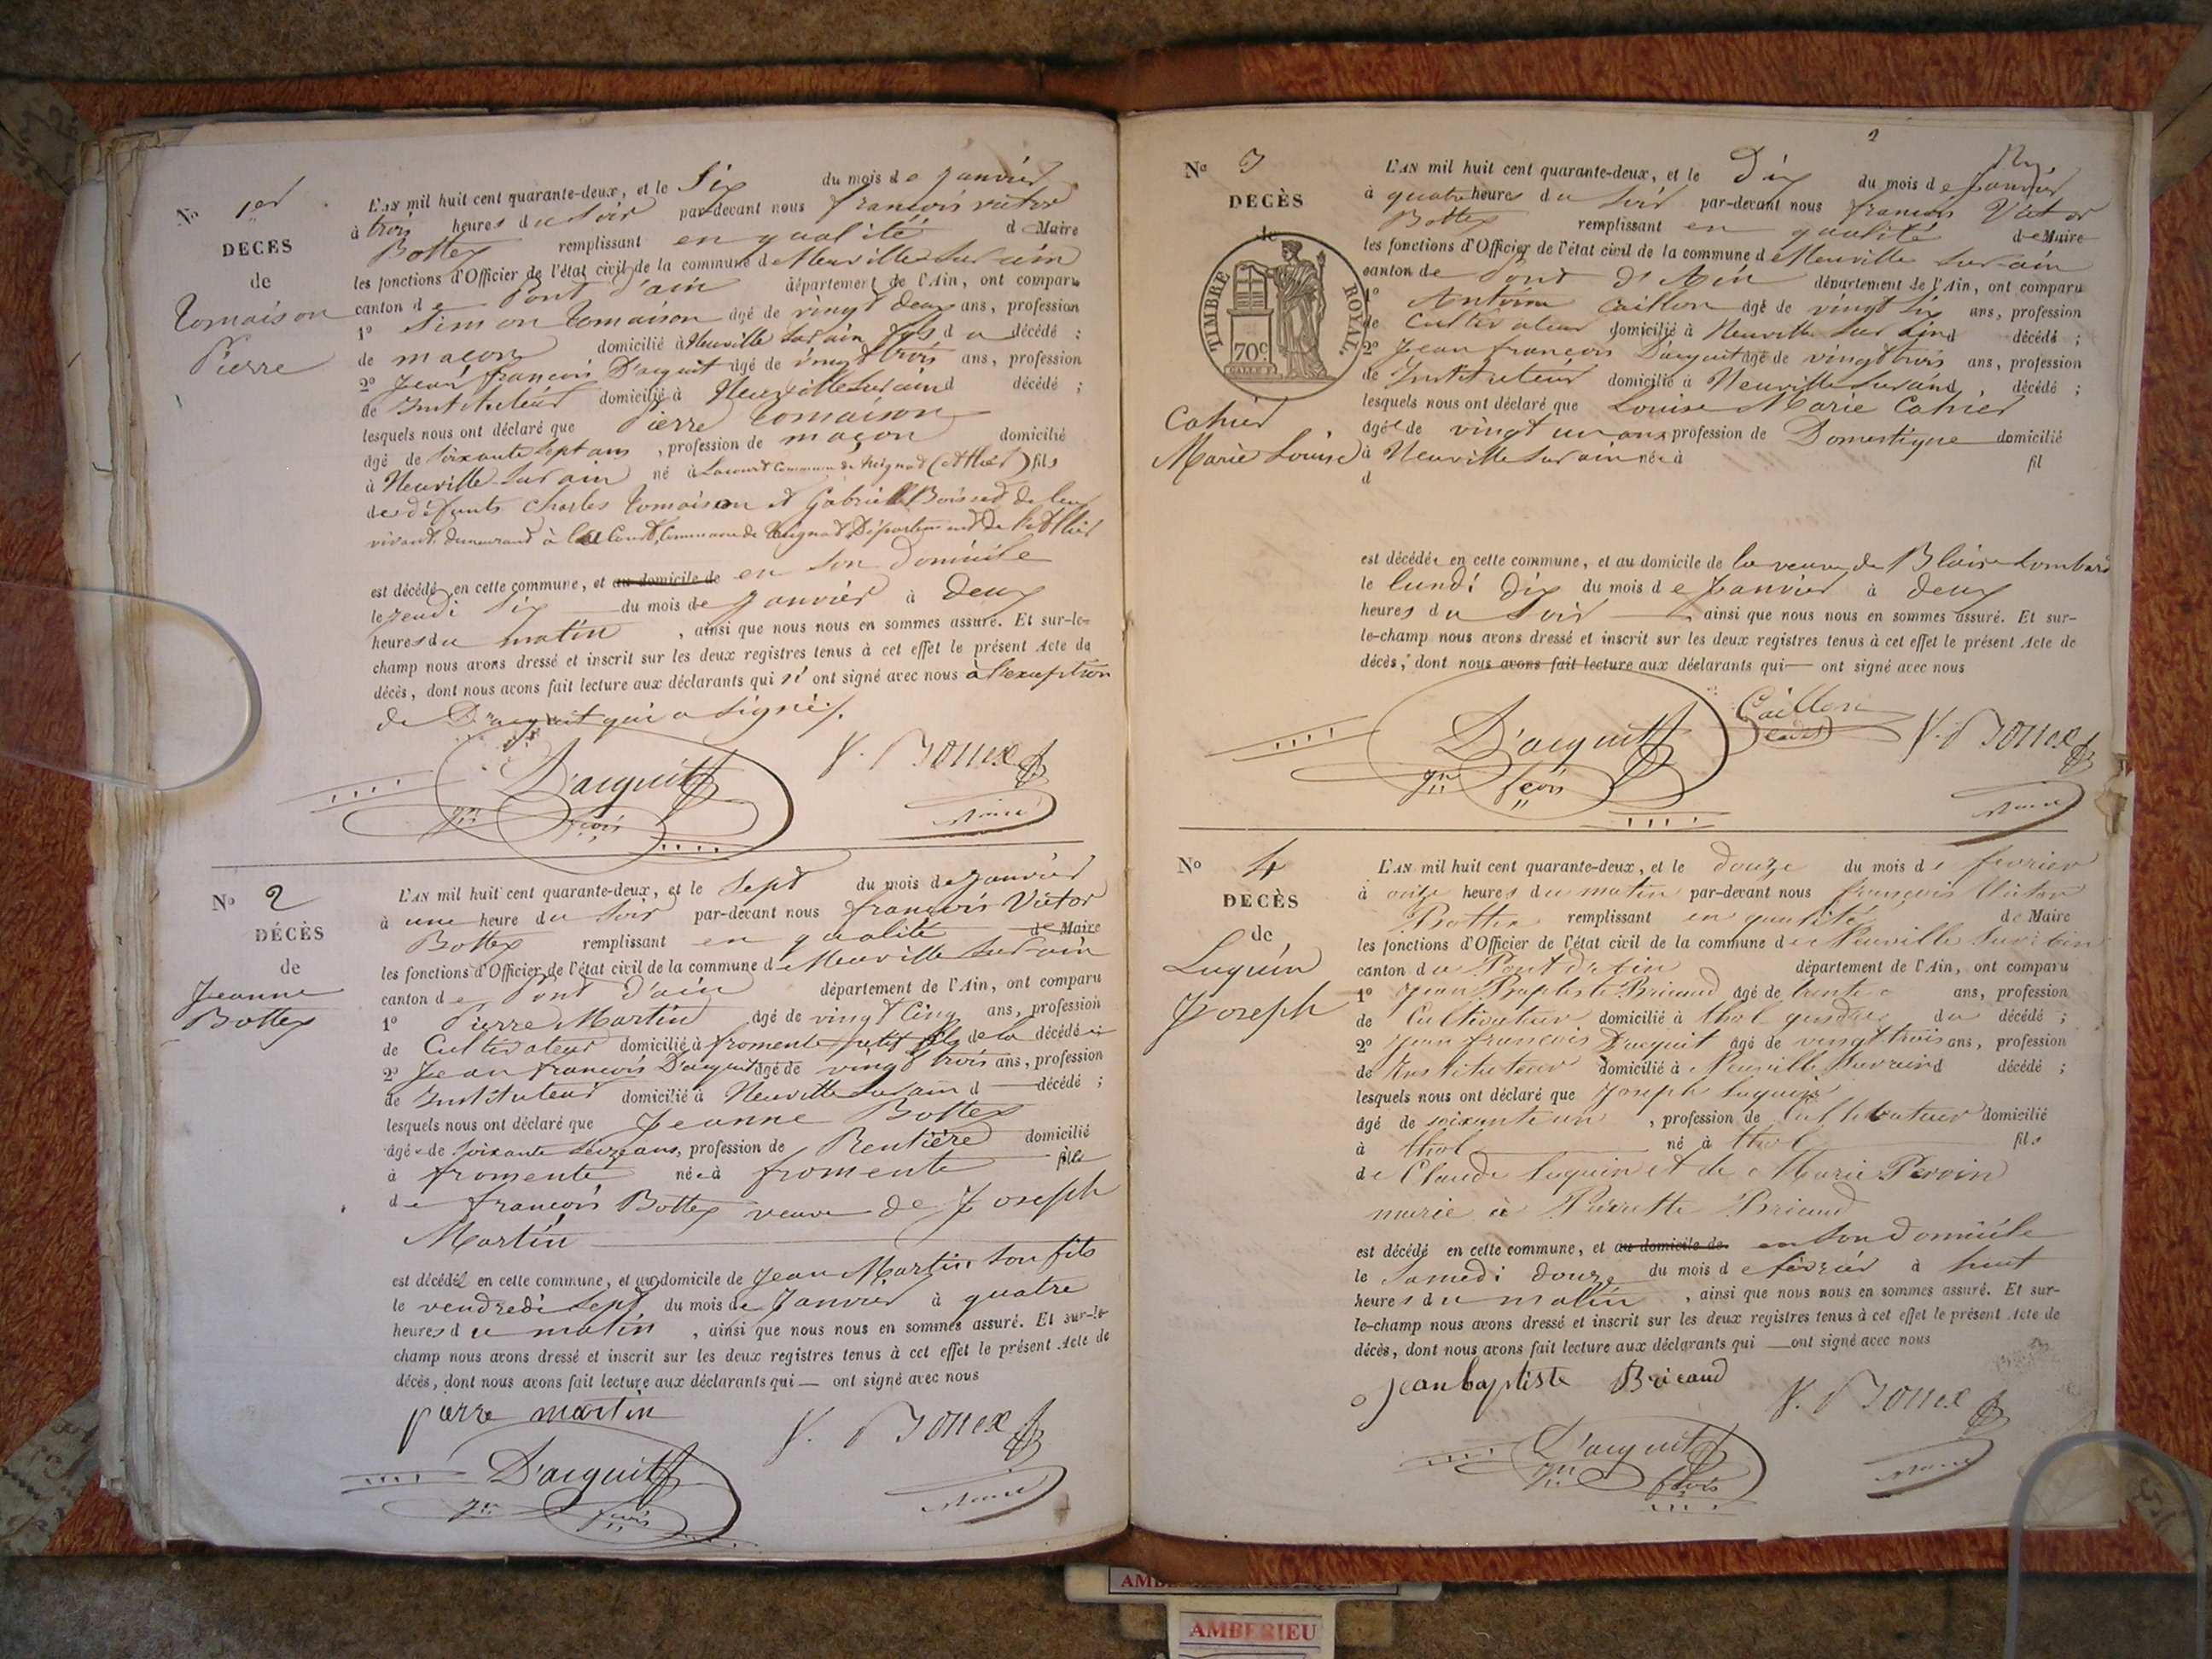 No 1er
DÉCÈS
de
Tomaison
Pierre
L'AN mil huit cent quarante-deux, et le Six du mois de Janvier
à trois heures du soir par-devant nous françois victor
Bottex remplissant en qualité de Maire
les fonctions d'Officier de l'état civil de la commune de Neuville sur ain
canton de Pont d'ain département de l'Ain, ont comparu
1º Simon Tomaison âgé de vingt deux ans, profession
de maçon domicilié à Neuville sur ain fils du décédé ;
2º Jean françois D'acquit âgé de vingt trois ans, profession
de Instituteur domicilié à Neuville sur ain d décédé ;
lesquels nous ont déclaré que Pierre Tomaison
âgé de soixante sept ans, profession de maçon domicilié
à Neuville sur ain né à Lacourt Commune de (Allier) fils
de défunts Charles Tomaison et Gabrielle Boisset de leur
vivant demeurant à la Court, Commune de Département de l'Allier
est décédé en cette commune, et au domicile de en son domicile
le jeudi Six du mois de Janvier à deux
heures du matin, ainsi que nous nous en sommes assuré. Et sur-le-
champ nous avons dressé et inscrit sur les deux registres tenus à cet effet le présent Acte de
décès, dont nous avons fait lecture aux déclarants qui n'ont signé avec nous à l'exception
de D'acquit qui a signé.
D'acquit V. Bottex
Jn fçois Maire
No 2
DÉCÈS
de
Jeanne
Bottex
L'AN mil huit cent quarante-deux, et le Sept du mois de Janvier
à une heure du soir par-devant nous françois Victor
Bottex remplissant en qualité de Maire
les fonctions d'Officier de l'état civil de la commune de Neuville sur ain
canton de Pont d'ain département de l'Ain, ont comparu
1º Pierre Martin âgé de vingt Cinq ans, profession
de Cultivateur domicilié à fromente petit fils de la décédée
2º Jean françois D'acquit âgé de vingt trois ans, profession
de Instituteur domicilié à Neuville sur ain d décédé ;
lesquels nous ont déclaré que Jeanne Bottex
âgée de soixante seize ans, profession de Rentière domicilié
à fromente née à fromente fille
de françois Bottex veuve de Joseph
Martin
est décédée en cette commune, et au domicile de Jean Martin son fils
le vendredi sept du mois de Janvier à quatre
heures du matin, ainsi que nous nous en sommes assuré. Et sur-le-
champ nous avons dressé et inscrit sur les deux registres tenus à cet effet le présent Acte de
décès, dont nous avons fait lecture aux déclarants qui ont signé avec nous
pierre martin V. Bottex
D'acquit
Jn fçois Maire
2
No 3
DÉCÈS
de
TIMBRE ROYAL.
70c
Cahier
Marie Louise
L'AN mil huit cent quarante-deux, et le Dix du mois de Janvier
à quatre heures du soir par-devant nous françois Victor
Bottex remplissant en qualité de Maire
les fonctions d'Officier de l'état civil de la commune de Neuville sur ain
canton de Pont d'Ain département de l'Ain, ont comparu
1º Antoine Caillon âgé de vingt six ans, profession
de Cultivateur domicilié à Neuville sur Ain d décédé ;
2º Jean françois D'acquit âgé de vingt trois ans, profession
de Instituteur domicilié à Neuville sur ain d, décédé ;
lesquels nous ont déclaré que Louise Marie Cahier
âgée de vingt un ans profession de Domestique domicilié
à Neuville sur ain née à fil
d
est décédée en cette commune, et au domicile de la veuve de Blaise Lombard
le lundi dix du mois de Janvier à deux
heures du soir ainsi que nous nous en sommes assuré. Et sur-
le-champ nous avons dressé et inscrit sur les deux registres tenus à cet effet le présent Acte de
décès, dont nous avons fait lecture aux déclarants qui ont signé avec nous
Caillon
D'acquit V. Bottex
Jn fçois Maire
No 4
DÉCÈS
de
Luquin
Joseph
L'AN mil huit cent quarante-deux, et le douze du mois de fevrier
à onze heures du matin par-devant nous françois Victor
Bottex remplissant en qualité de Maire
les fonctions d'Officier de l'état civil de la commune de Neuville sur Ain
canton du Pont d'Ain département de l'Ain, ont comparu
1º Jean Baptiste Bricaud âgé de trente ans, profession
de Cultivateur domicilié à thol gendre du décédé ;
2º Jean françois D'acquit âgé de vingt trois ans, profession
de Instituteur domicilié à Neuville sur ain d décédé ;
lesquels nous ont déclaré que Joseph Luquin
âgé de soixante un, profession de Cultivateur domicilié
à thol né à thol fils
de Claude Luquin et de Marie Pervin
marié à Pierrette Bricaud
est décédé en cette commune, et au domicile de en son domicile
le samedi douze du mois de février à huit
heures du matin, ainsi que nous nous en sommes assuré. Et sur-
le-champ nous avons dressé et inscrit sur les deux registres tenus à cet effet le présent Acte de
décès, dont nous avons fait lecture aux déclarants qui ont signé avec nous
jean baptiste Bricaud V. Bottex
D'acquit
Jn fçois Maire
AMBERIEU